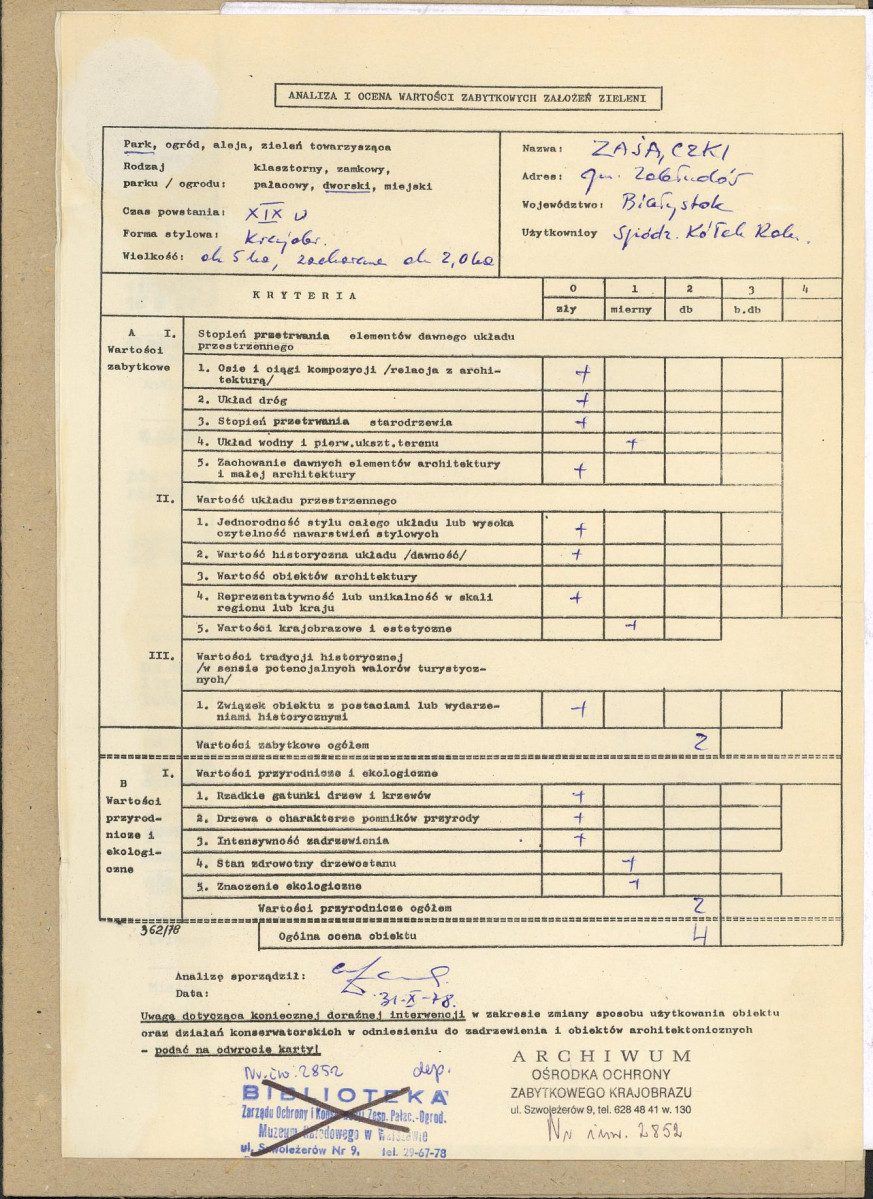 ANALIZA I OCENA WARTOŚCI ZABYTKOWYCH ZAŁOŻEŃ ZIELENI
Park, ogród, aleja, zieleń towarzysząca
Rodzaj klasztorny, zamkowy,
parku / ogrodu: pałacowy, dworski, miejski
Czas powstania: XIX w
Forma stylowa: Krajobr.
Wielkość: ok 5 ha, zachowane ok 2,0 ha
Nazwa: ZAJĄCZKI
Adres: gm. Zabłudów
Województwo: Białystok
Użytkownicy Spółdz. Kółek Roln.
KRYTERIA 0 1 2 3 4
zły mierny db b.db
A I. Stopień przetrwania elementów dawnego układu
Wartości przestrzennego
zabytkowe
1. Osie i ciągi kompozycji /relacja z archi- +
tekturą/
2. Układ dróg +
3. Stopień przetrwania starodrzewia +
4. Układ wodny i pierw.ukszt.terenu +
5. Zachowanie dawnych elementów architektury +
i małej architektury
II. Wartość układu przestrzennego
1. Jednorodność stylu całego układu lub wysoka +
czytelność nawarstwień stylowych
2. Wartość historyczna układu /dawność/ +
3. Wartość obiektów architektury
4. Reprezentatywność lub unikalność w skali +
regionu lub kraju
5. Wartości krajobrazowe i estetyczne +
III. Wartości tradycji historycznej
/w sensie potencjalnych walorów turystycz-
nych/
1. Związek obiektu z postaciami lub wydarze- +
niami historycznymi
Wartości zabytkowe ogółem 2
B I. Wartości przyrodnicze i ekologiczne
Wartości
przyrod-
nicze i
ekologi-
czne
1. Rzadkie gatunki drzew i krzewów +
2. Drzewa o charakterze pomników przyrody +
3. Intensywność zadrzewienia +
4. Stan zdrowotny drzewostanu +
5. Znaczenie ekologiczne +
Wartości przyrodnicze ogółem 2
362/78
Ogólna ocena obiektu 4
Analizę sporządził:
Data: 31-X-78.
Uwagę dotycząca koniecznej doraźnej interwencji w zakresie zmiany sposobu użytkowania obiektu
oraz działań konserwatorskich w odniesieniu do zadrzewienia i obiektów architektonicznych
- podać na odwrocie karty!
Nr. inw. 2852 dep.
BIBLIOTEKA
Zarządu Ochrony i Konserwacji Zesp. Pałac.-Ogrod.
Muzeum Narodowego w Warszawie
ul. Szwoleżerów Nr 9, tel. 29-67-78
ARCHIWUM
OŚRODKA OCHRONY
ZABYTKOWEGO KRAJOBRAZU
ul. Szwoleżerów 9, tel. 628 48 41 w. 130
Nr inw. 2852